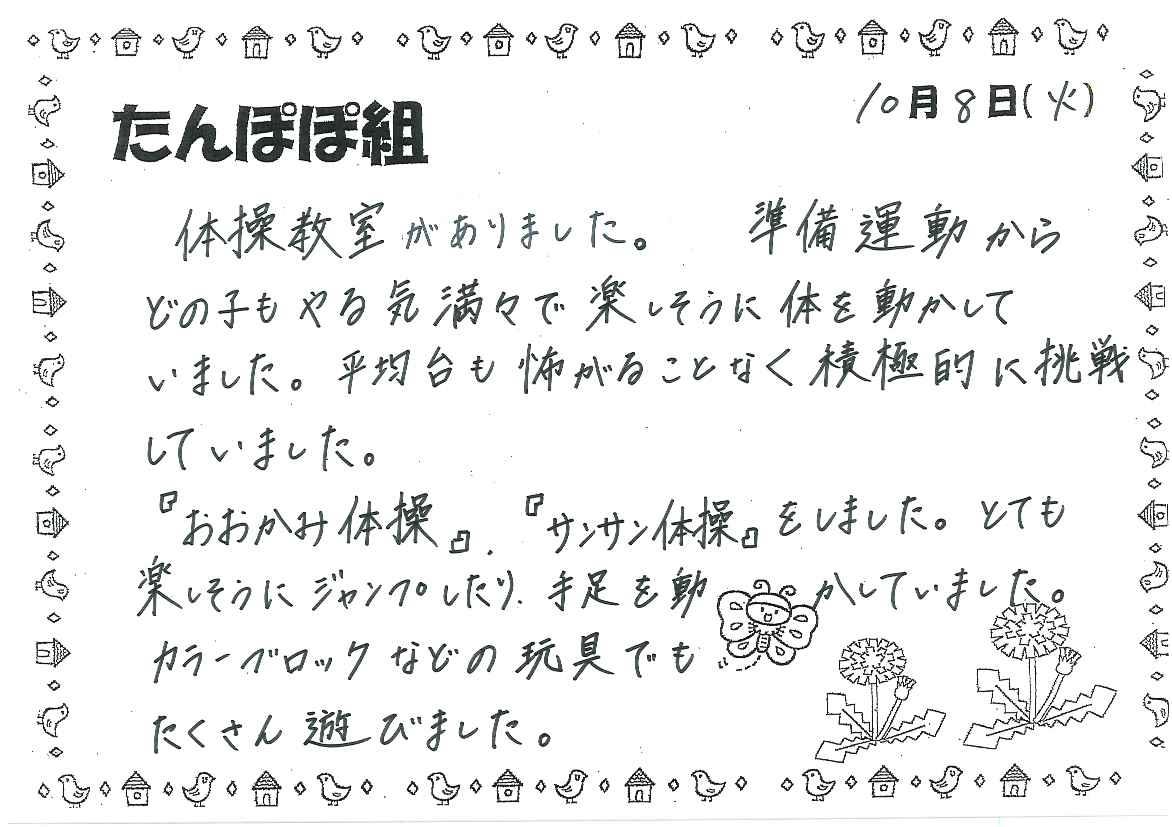 たんぽぽ組
10月8日(火)
体操教室がありました。 準備運動から
どの子もやる気満々で楽しそうに体を動かして
いました。平均台も怖がることなく積極的に挑戦
していました。
『おおかみ体操』、『サンサン体操』をしました。とても
楽しそうにジャンプしたり、手足を動かしていました。
カラーブロックなどの玩具でも
たくさん遊びました。